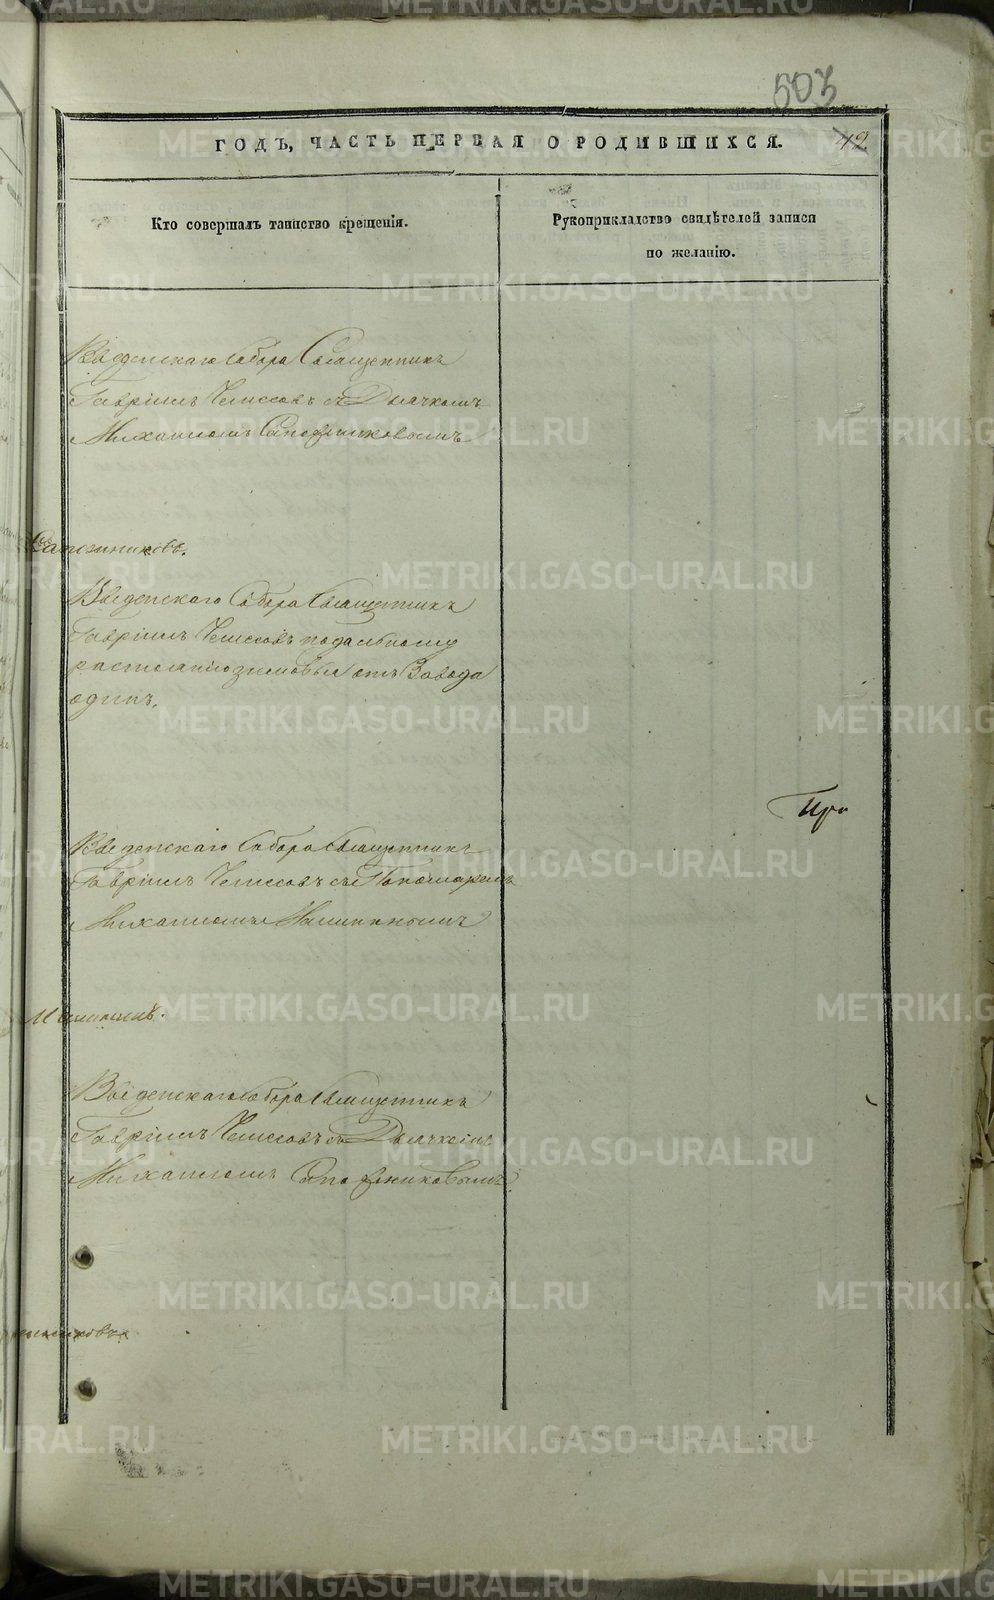 503
ГОДЪ, ЧАСТЬ ПЕРВАЯ О РОДИВШИХСЯ. 42
Кто совершалъ таинство крещенія.
Рукоприкладство свидѣтелей записи
по желанію.
Введенскаго Собора Священникъ
Гавріилъ Чемесовъ съ Дьячкомъ
Михаиломъ Сапожниковымъ
Сапожниковъ.
Введенскаго Собора Священникъ
Гавріилъ Чемесовъ по дальному
растоянію зимовья отъ Завода
одинъ.
При
Введенскаго Собора Священникъ
Гавріилъ Чемесовъ съ Пономаремъ
Михаиломъ
Введенскаго Собора Священникъ
Гавріилъ Чемесовъ съ Дьячкомъ
Михаиломъ Сапожниковымъ
METRIKI.GASO-URAL.RU